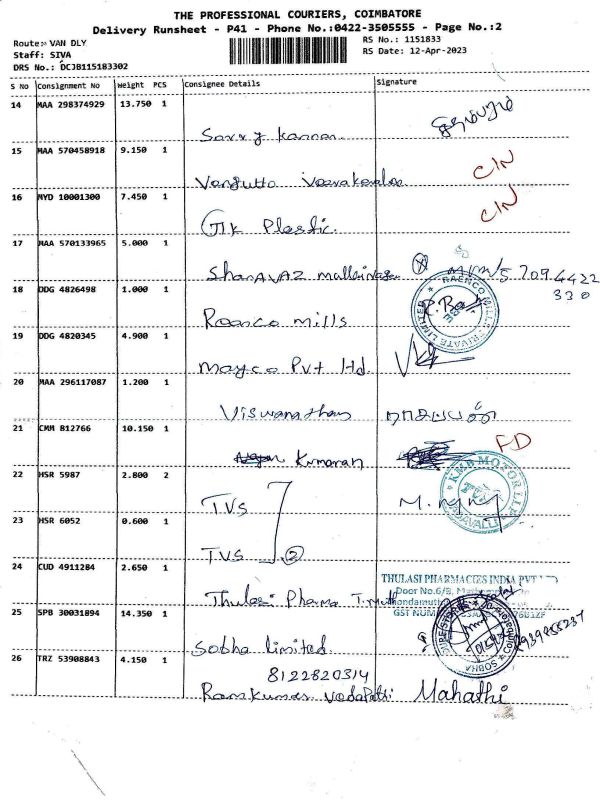 THE PROFESSIONAL COURIERS, COIMBATORE
Delivery Runsheet - P41 - Phone No.:0422-3505555 - Page No.:2
Route:- VAN DLY
RS No.: 1151833
Staff: SIVA
RS Date: 12-Apr-2023
DRS No.: DCJB115183302
S No Consignment No Weight PCS Consignee Details Signature
14 MAA 298374929 13.750 1
Kannan
15 MAA 570458918 9.150 1 C/N
16 MYD 10001300 7.450 1 C/N
GTK Plastic.
17 MAA 570133965 5.000 1
18 DDG 4826498 1.000 1
RAENCO MILLS PRIVATE LIMITED
Roanco mills
19 DDG 4820345 4.900 1
Mayco Pvt ltd.
20 MAA 296117087 1.200 1
Viswanathan
21 CMM B12766 10.150 1
Kumaran FD
22 HSR 5987 2.800 2
KMB MOTOR
TVS
23 HSR 6052 0.600 1
TVS 2
24 CUD 4911284 2.650 1
THULASI PHARMACIES INDIA PVT
Door No.6/B,
GST NUM
Thulasi Pharma
25 SPB 30031894 14.350 1
SOBHA
Sobha Limited
26 TRZ 53908843 4.150 1
8122820314
Ramkumar Mahathi